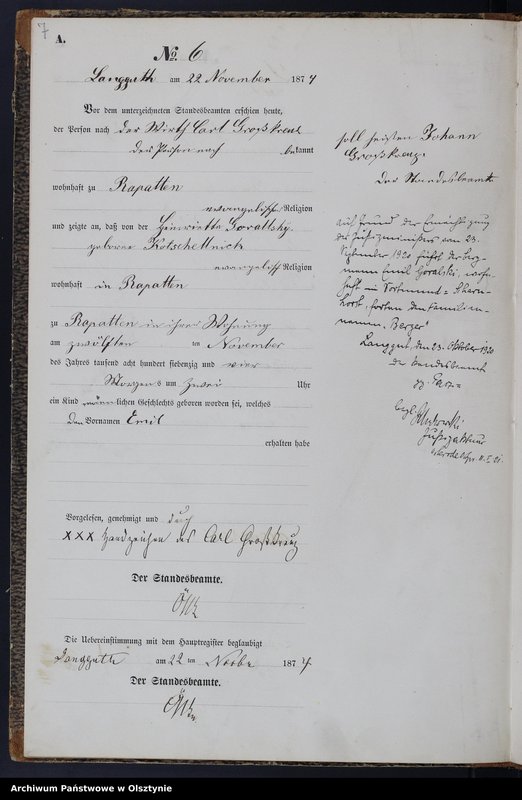 7
A.
No. 6
Langguth am 22 November 1874
Vor dem unterzeichneten Standesbeamten erschien heute,
der Person nach der Wirth Carl Großkreuz
der Person nach bekannt
wohnhaft zu Rapatten
evangelischer Religion
und zeigte an, daß von der Henriette Goraltsky
geborne Kotschettnick
evangelisch Religion
wohnhaft in Rapatten
zu Rapatten in ihrer Wohnung
am zwölften ten November
des Jahres tausend acht hundert siebenzig und vier
Morgens um zwei Uhr
ein Kind männlichen Geschlechts geboren worden sei, welches
den Vornamen Emil
erhalten habe
Vorgelesen, genehmigt und durch
XXX Handzeichen des Carl Großkreuz
Der Standesbeamte.
Die Uebereinstimmung mit dem Hauptregister beglaubigt
Langguth am 22 ten Novbr 1874
Der Standesbeamte.
soll heißen Johann
Großkreuz.
Der Standesbeamte
auf Grund der Ermächtigung
des Justizministers vom 23.
September 1920 führt der Berg-
mann Emil Goralski, wohn-
haft in Dortmund-
fortan den Familien-
namen „Berger"
Langgut, den 23. Oktober 1920
Der Standesbeamte
gz.
begl.
Archiwum Państwowe w Olsztynie